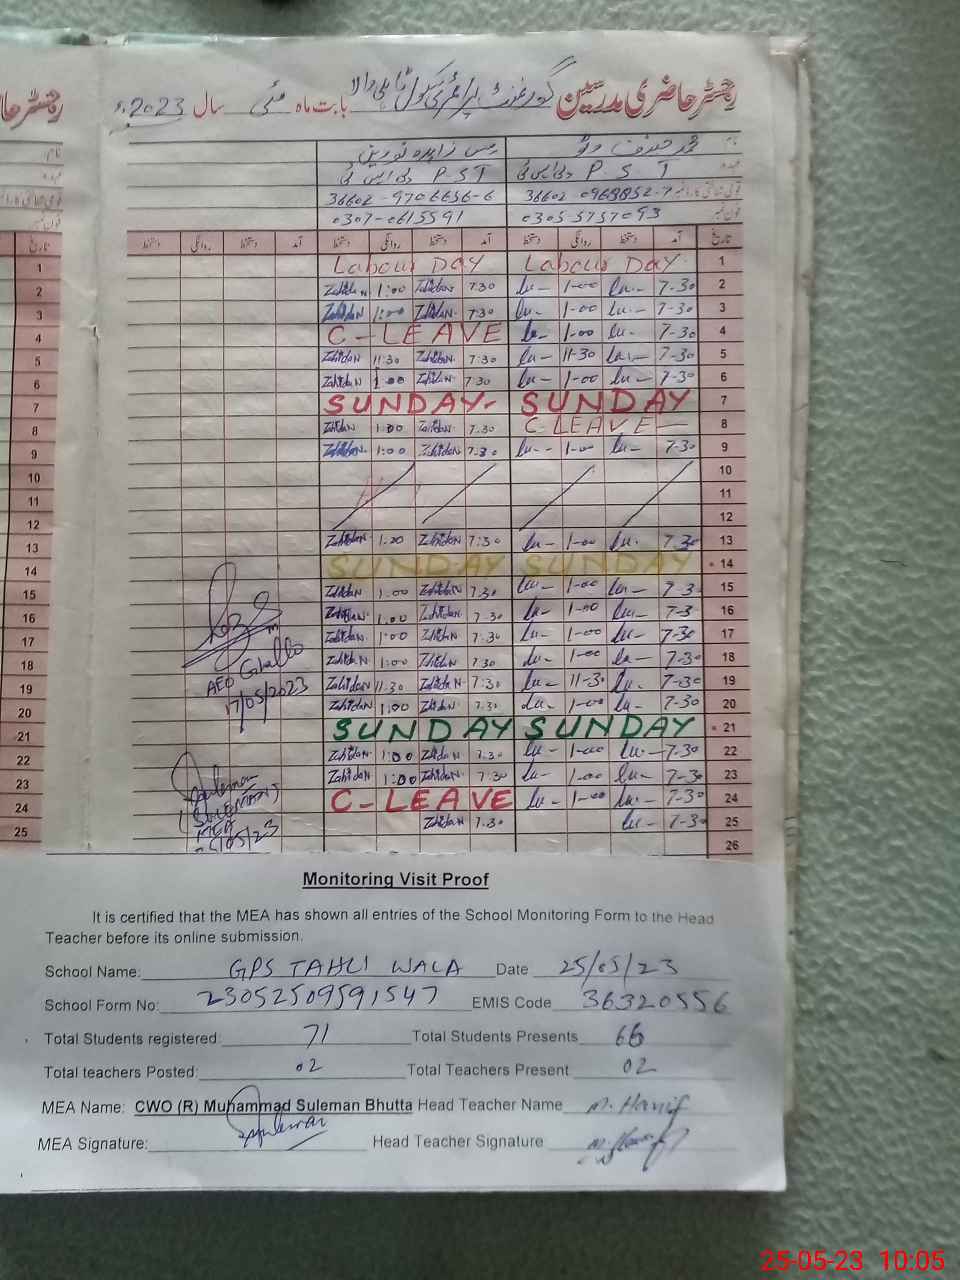 رجسٹر حاضری مدرسین گورنمنٹ پرائمری سکول ٹاہلی والا بابت ماہ مئی سال 2023ء
نام محمد حنیف مس زاہدہ نورین
عہدہ پی ایس ٹی P S T پی ایس ٹی P S T
36602-0963852-7 36602-9706656-6
فون نمبر 0305-5757093 0307-0615591
تاریخ آمد دستخط روانگی دستخط آمد دستخط روانگی دستخط آمد دستخط روانگی دستخط
Labour DAY Labour DAY 1
Zahidan 1:00 Zahidan 7.30 1-00 7-30 2
Zahidan 1:00 Zahidan 7.30 1-00 7-30 3
C-LEAVE 1-00 7-30 4
Zahidan 11:30 Zahidan 7:30 11-30 7-30 5
Zahidan 1:00 Zahidan 7.30 1-00 7-30 6
SUNDAY- SUNDAY 7
Zahidan 1:00 Zahidan 7.30 C-LEAVE 8
Zahidan 1:00 Zahidan 7.30 1-00 7-30 9
10
11
12
Zahidan 1:00 Zahidan 7:30 1-00 7-30 13
SUNDAY SUNDAY 14
Zahidan 1.00 Zahidan 7.30 1-00 7-3 15
Zahidan 1.00 Zahidan 7.30 1-00 7-3 16
Zahidan 1:00 Zahidan 7:30 1-00 7-30 17
Zahidan 1:00 Zahidan 7.30 1-00 7-30 18
AEO
Zahidan 11:30 Zahidan 7:30 11-30 7-30 19
17/05/2023
Zahidan 1:00 Zahidan 7.30 1-00 7-30 20
SUNDAY SUNDAY 21
Zahidan 1:00 Zahidan 7.30 1-00 7-30 22
Zahidan 1:00 Zahidan 7.30 1-00 7-30 23
C-LEAVE 1-00 7-30 24
(SULEMAN)
MEA
Zahidan 7.30 7-30 25
26
Monitoring Visit Proof
It is certified that the MEA has shown all entries of the School Monitoring Form to the Head
Teacher before its online submission.
School Name: GPS TAHLI WALA Date 25/05/23
School Form No: 23052509591547 EMIS Code 36320556
Total Students registered: 71 Total Students Presents 66
Total teachers Posted: 02 Total Teachers Present 02
MEA Name: CWO (R) Muhammad Suleman Bhutta Head Teacher Name M. Hanif
MEA Signature: Suleman Head Teacher Signature M. Hanif
25-05-23 10:05